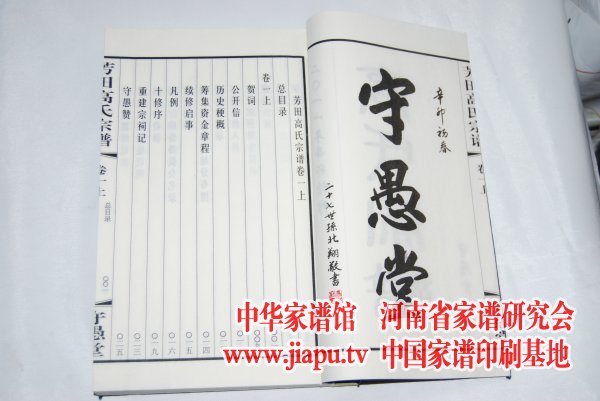 辛卯初春
守愚堂
二十七世孙北翔敬书
芳田高氏宗谱
卷一上
芳田高氏宗谱卷一上
总目录
卷一上
贺词
公开信
历史梗概
筹集资金章程
续修启事
凡例
十修序
重建宗祠记
守愚赞
芳田高氏宗谱
卷一上
总目录
〇〇一
守愚堂
中华家谱馆 河南省家谱研究会
www.jiapu.tv 中国家谱印刷基地